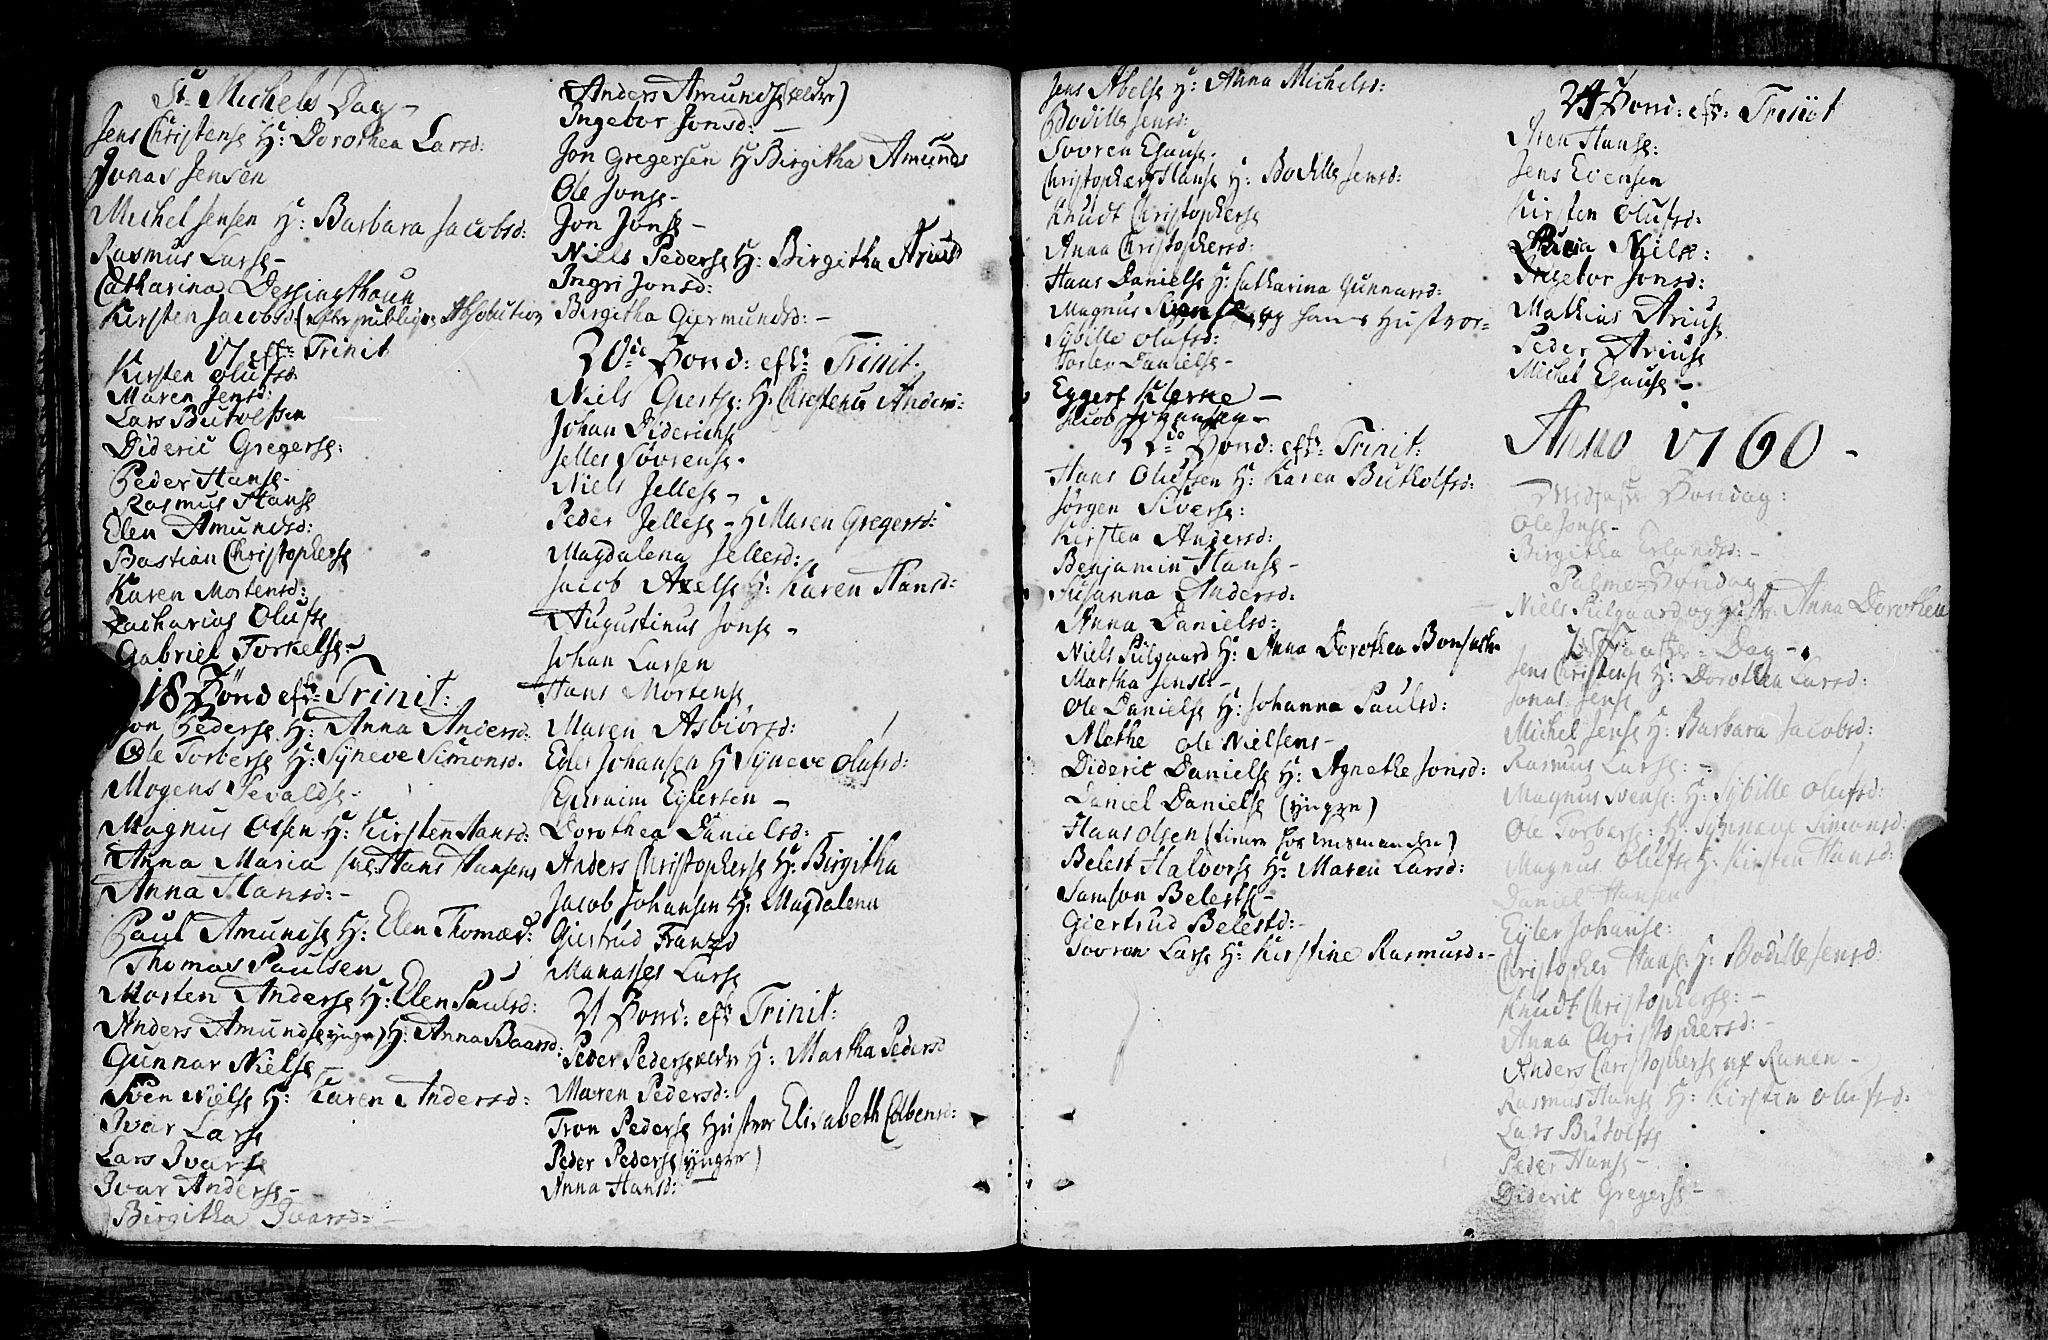 St. Michels Dag -
Jens Christense H: Dorothea Larsd:
Jonas Jensen
Michel Jensen H: Barbara Jacobsd:
Rasmus Larse -
Catharina
Kirsten Jacobsd: (efter publiqve Absolution
17 eft: Trinit
Kirsten Olufsd
Maren Jensd:
Lars Butolfsen
Dideric Gregerse:
Peder Hanse -
Rasmus Hanse
Elen Amundsd:
Bastian Christopherse
Karen Mortensd:
Zacharias Olufse
Gabriel Torkelse -
18 Sönd eft: Trinit:
Jon Pederse H: Anna Andersd:
Ole Torberse H: Syneve Simonsd.
Mogens Sevaldse -
Magnus Olsen H: Kirsten Hansd:
Anna Maria Hans Hansens
Anna Hansd: -
Paul Amundse H: Elen Thomæd:
Thomas Paulsen
Morten Anderse H: Elen Paulsd:
Anders Amundse (yngre) H: Anna Baarsd:
Gunnar Nielse -
Sven Nielse H: Karen Andersd:
Ivar Larse
Lars Ivarse
Ivar Anderse -
Birgitha Ivarsd: -
Anders Amundse (eldre)
Ingebor Jonsd: -
Jon Gregersen H Birgitha Amunds
Ole Jonse -
Jon Jonse -
Niels Pederse H: Birgitha Ariusd
Ingri Jonsd:
Birgitha Giermundsd: -
20de Sönd: eft: Trinit.
Niels Giertse: H: Christence Anders:
Johan Diderichse
Jelles Sövrense.
Niels Jellese -
Peder Jellese - H Maren Gregersd:
Magdalena Jellesd:
Jacob Axelse H: Karen Hansd:
Augustinus Jonse -
Johan Larsen
Hans Mortense
Maren Asbiörsd:
Eyler Johansen H Syneve Olufsd:
Ephraim Eylersen -
Dorothea Danielsd:
Anders Christopherse H: Birgitha
Jacob Johansen H: Magdalena
Giertrud Frantzd
Manasses Larse
21 Sönd: eft Trinit:
Peder Pederse eldre H: Martha Pedersd
Maren Pedersd:
Tron Pederse Hustroe Elisabeth Colbensd:
Peder Pederse (yngre)
Anna Hansd:
Jens Abelse H: Anna Michelsd:
Bodille Jensd:
Sövren Esause.
Christopher Hanse H: Bodille Jensd:
Knudt Christopherse
Anna Christophersd:
Hans Danielse H: Catharina Gunnarsd:
Magnus Svense og hans Hustroe -
Sybille Olufsd:
Danielse -
Eggert Klerke -
Jacob Johansen -
22de Sönd: eft: Trinit:
Hans Olufsen H: Karen Butholfsd:
Jörgen Siverse:
Kirsten Andersd:
Benjamin Hanse -
Susanna Andersd:
Anna Danielsd:
Niels Pülgaard H: Anna Dorothea
Martha Jensd: -
Ole Danielse H: Johanna Paulsd:
Mette Ole Nielsens -
Dideric Danielse H: Agnethe Jonsd:
Daniel Danielse (yngre)
Hans Olsen (
Belest Halvorse H: Maren Larsd:
Samson Belestse -
Giertrud Belestd: -
Sövren Larse H: Kirstine Rasmusd: -
24 Sönd: eft: Trinit
Iven Hanse:
Jens Evensen
Kirsten Olufsd:
Nilse:
Ingebor Jonsd:
Mathias Ariuse
Peder Ariuse
Michel Esause -
Anno 1760 -
Midfaste Söndag:
Ole Jonse -
Birgitha Erlandsd: -
Palme=Söndag
Niels Pülgaard og Hustr: Anna Dorothea
Dag -
Jens Christense H: Dorothea Larsd:
Jonas Jense
Michel Jense H: Barbara Jacobsd:
Rasmus Larse: -
Magnus Svense: H: Sybille Olufsd:
Ole Torberse: H: Synneve Simonsd:
Magnus Olufse H: Kirsten Hansd:
Daniel Hansen
Eyler Johanse:
Christopher Hanse: H: Bodille Jensd:
Knudt Christopherse: -
Anna Christophersd: -
Anders Christopherse af Ranen -
Rasmus Hanse H: Kirsten Olufsd:
Lars Butolfse
Peder Hanse -
Dideric Gregerse -